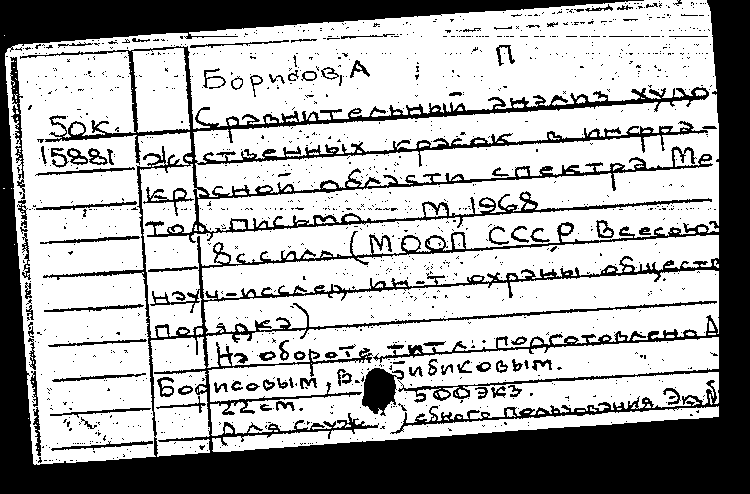 Борисов, А П
50к. Сравнительный анализ худо-
15881 жественных красок в инфра-
красной области спектра. Ме-
тод. письмо. М., 1968
8с. с илл. (МООП СССР. Всесоюз
науч.-исслед. ин-т охраны обществ
порядка)
На обороте тит. л.: подготовлено А
Борисовым, В. Бибиковым.
22 см. 500 экз.
Для служебного пользования.